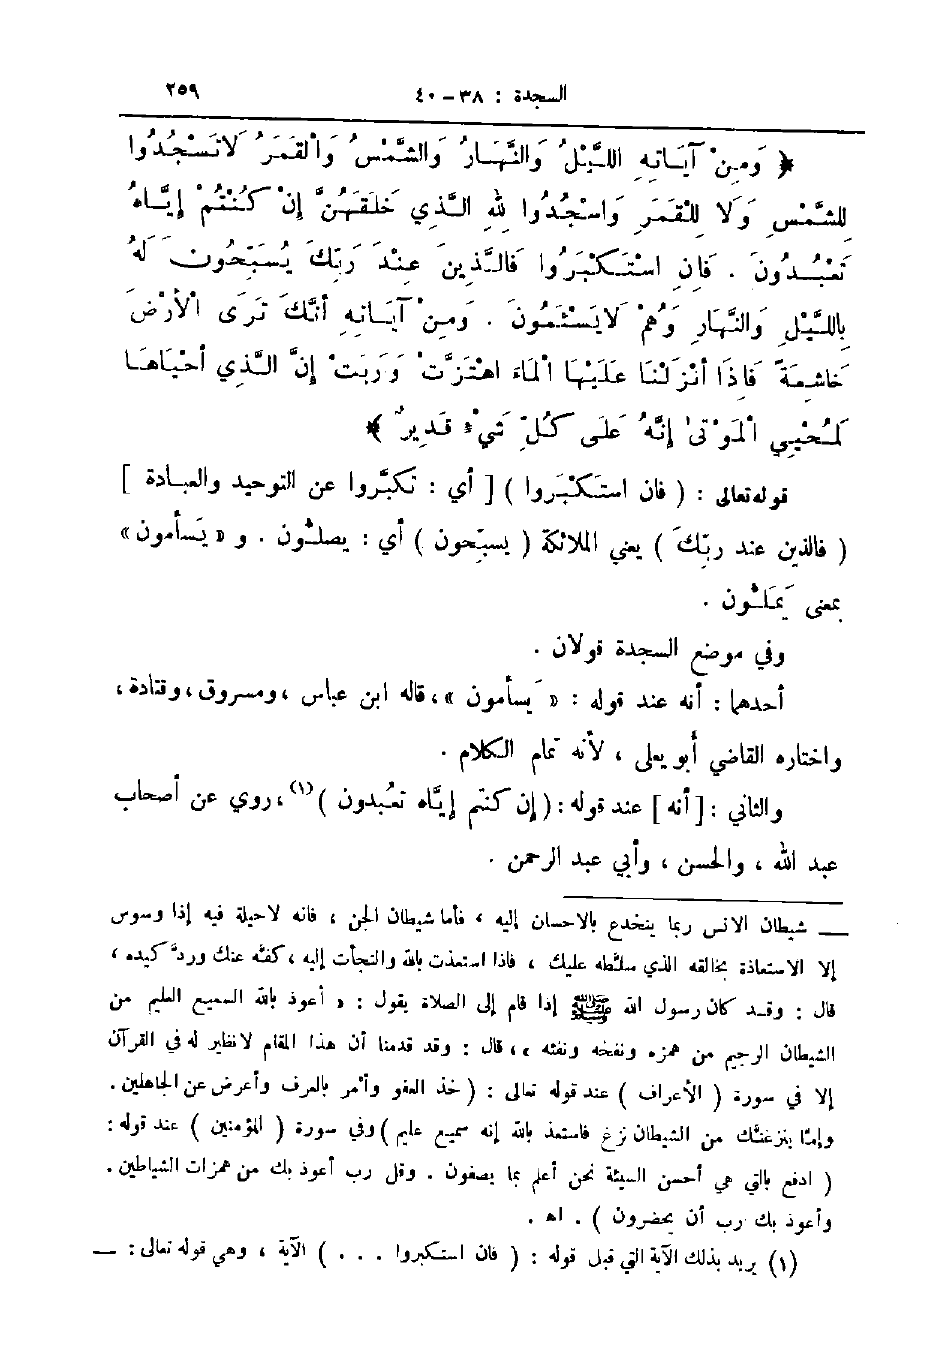 السجدة : ٣٨ - ٤٠ ٢٥٩
﴿ وَمِنْ آيَاتِهِ اللَّيْلُ وَالنَّهَارُ وَالشَّمْسُ وَالْقَمَرُ لَا تَسْجُدُوا
لِلشَّمْسِ وَلَا لِلْقَمَرِ وَاسْجُدُوا لِلهِ الَّذِي خَلَقَهُنَّ إِنْ كُنْتُمْ إِيَّاهُ
تَعْبُدُونَ . فَإِنِ اسْتَكْبَرُوا فَالَّذِينَ عِنْدَ رَبِّكَ يُسَبِّحُونَ لَهُ
بِاللَّيْلِ وَالنَّهَارِ وَهُمْ لَا يَسْئَمُونَ . وَمِنْ آيَاتِهِ أَنَّكَ تَرَى الْأَرْضَ
خَاشِعَةً فَإِذَا أَنْزَلْنَا عَلَيْهَا الْمَاءَ اهْتَزَّتْ وَرَبَتْ إِنَّ الَّذِي أَحْيَاهَا
لَمُحْيِي الْمَوْتَىٰ إِنَّهُ عَلَى كُلِّ شَيْءٍ قَدِيرٌ ﴾
قوله تعالى : ( فان استكْبَروا ) [ أي : تكبَّروا عن التوحيد والعبادة ]
( فالذين عند ربِّكَ ) يعني الملائكة ( يسبِّحون ) أي : يصلُّون . و « يَسأمون »
بمعنى يَمَلُّون .
وفي موضع السجدة قولان .
أحدهما : أنه عند قوله : « يَسأمون » ، قاله ابن عباس ، ومسروق ، وقتادة ،
واختاره القاضي أبو يعلى ، لأنه تمام الكلام .
والثاني : [ أنه ] عند قوله : ( إن كنتم إيَّاه تعبُدون ) (١) ، روي عن أصحاب
عبد الله ، والحسن ، وأبي عبد الرحمن .
ــ شيطان الانس ربما ينخدع بالاحسان إليه ، فأما شيطان الجن ، فانه لاحيلة فيه إذا وسوس
إلا الاستعاذة بخالقه الذي سلَّطه عليك ، فاذا استعذت بالله والتجأت إليه ، كفَّه عنك وردَّ كيده ،
قال : وقد كان رسول الله ﷺ إذا قام إلى الصلاة يقول : « أعوذ بالله السميع العليم من
الشيطان الرجيم من همزه ونفخه ونفثه » ، قال : وقد قدمنا أن هذا المقام لانظير له في القرآن
إلا في سورة ( الأعراف ) عند قوله تعالى : ( خذ العفو وأمر بالعرف وأعرض عن الجاهلين .
وإمَّا ينزغنَّك من الشيطان نزغ فاستعذ بالله إنه سميع عليم ) وفي سورة ( المؤمنين ) عند قوله :
( ادفع بالتي هي أحسن السيئة نحن أعلم بما يصفون . وقل رب أعوذ بك من همزات الشياطين .
وأعوذ بك رب أن يحضرون ) . اه .
(١) يريد بذلك الآية التي قبل قوله : ( فان استكبروا . . . ) الآية ، وهي قوله تعالى : ــ